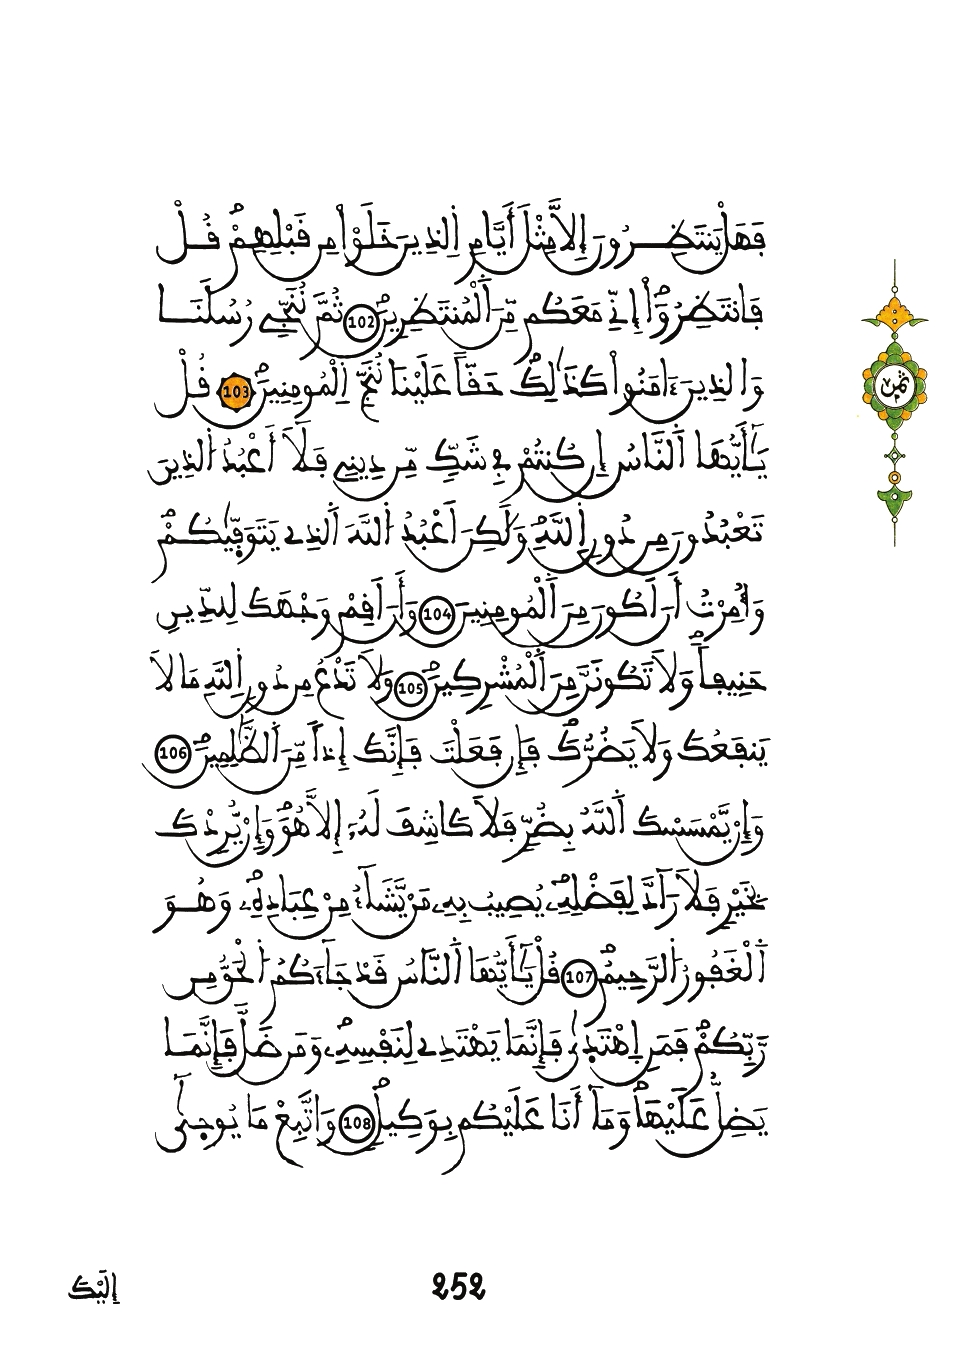 فَهَلْ يَنتَظِرُونَ إِلاَّ مِثْلَ أَيَّامِ اِ۬لذِينَ خَلَوْاْ مِن قَبْلِهِمْۖ قُلْ
فَانتَظِرُوٓاْ إِنِّے مَعَكُم مِّنَ اَ۬لْمُنتَظِرِينَۖ 102 ثُمَّ نُنَجِّے رُسُلَنَا
وَالذِينَ ءَامَنُواْ كَذَٰلِكَۖ حَقّاً عَلَيْنَا نُنَجِّ اِ۬لْمُومِنِينَۖ 103 قُلْ
يَٰٓأَيُّهَا اَ۬لنَّاسُ إِن كُنتُمْ فِے شَكّٖ مِّن دِينِے فَلَآ أَعْبُدُ اُ۬لذِينَ
تَعْبُدُونَ مِن دُونِ اِ۬للَّهِۖ وَلَٰكِنَ اَعْبُدُ اُ۬للَّهَ اَ۬لذِے يَتَوَفّ۪يٰكُمْۖ
وَأُمِرْتُ أَنَ اَكُونَ مِنَ اَ۬لْمُومِنِينَ 104 وَأَنَ اَقِمْ وَجْهَكَ لِلدِّينِ
حَنِيفاٗۖ وَلَا تَكُونَنَّ مِنَ اَ۬لْمُشْرِكِينَۖ 105 وَلَا تَدْعُ مِن دُونِ اِ۬للَّهِ مَا لَا
يَنفَعُكَ وَلَا يَضُرُّكَۖ فَإِن فَعَلْتَ فَإِنَّكَ إِذاٗ مِّنَ اَ۬لظَّٰلِمِينَۖ 106
وَإِنْ يَّمْسَسْكَ اَ۬للَّهُ بِضُرّٖ فَلَا كَاشِفَ لَهُۥٓ إِلاَّ هُوَۖ وَإِنْ يُّرِدْكَ
بِخَيْرٖ فَلَا رَآدَّ لِفَضْلِهِۦۖ يُصِيبُ بِهِۦ مَنْ يَّشَآءُ مِنْ عِبَادِهِۦۖ وَهُوَ
اَ۬لْغَفُورُ اُ۬لرَّحِيمُۖ 107 قُلْ يَٰٓأَيُّهَا اَ۬لنَّاسُ قَدْ جَآءَكُمُ اُ۬لْحَقُّ مِن
رَّبِّكُمْۖ فَمَنِ اِ۪هْتَد۪ىٰ فَإِنَّمَا يَهْتَدِے لِنَفْسِهِۦۖ وَمَن ضَلَّ فَإِنَّمَا
يَضِلُّ عَلَيْهَاۖ وَمَآ أَنَا عَلَيْكُم بِوَكِيلٖۖ 108 وَاتَّبِعْ مَا يُوح۪ىٰٓ
ثمن
إِلَيْكَ
252